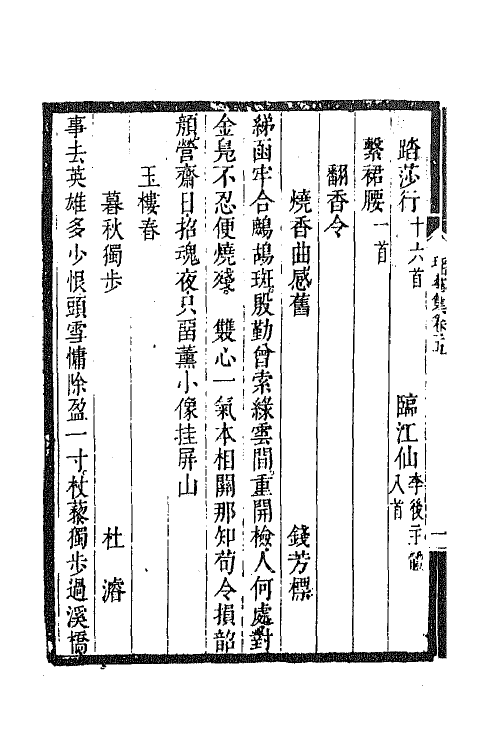 踏莎行十六首　臨江仙李後主體八首
繫裙腰一首
翻香令
燒香曲感舊　錢芳標
綈函牢合鷓鴣斑殷勤曾索綠雲間重開檢人何處對
金鳧不忍便燒殘　雙心一氣本相關那知荀令損韶
顏營齋日招魂夜只留薰小像挂屏山
玉樓春
暮秋獨步　杜濬
事去英雄多少恨頭雪慵除盈一寸杖藜獨步過溪橋
瑤華集卷五
一